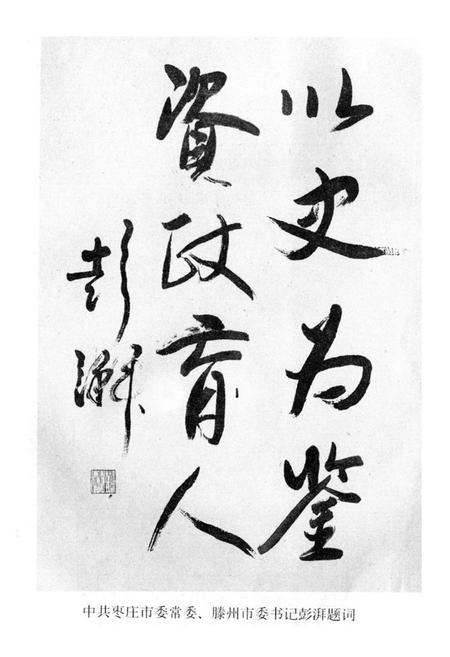 以史为鉴
資政育人
彭湃
中共枣庄市委常委、滕州市委书记彭湃题词